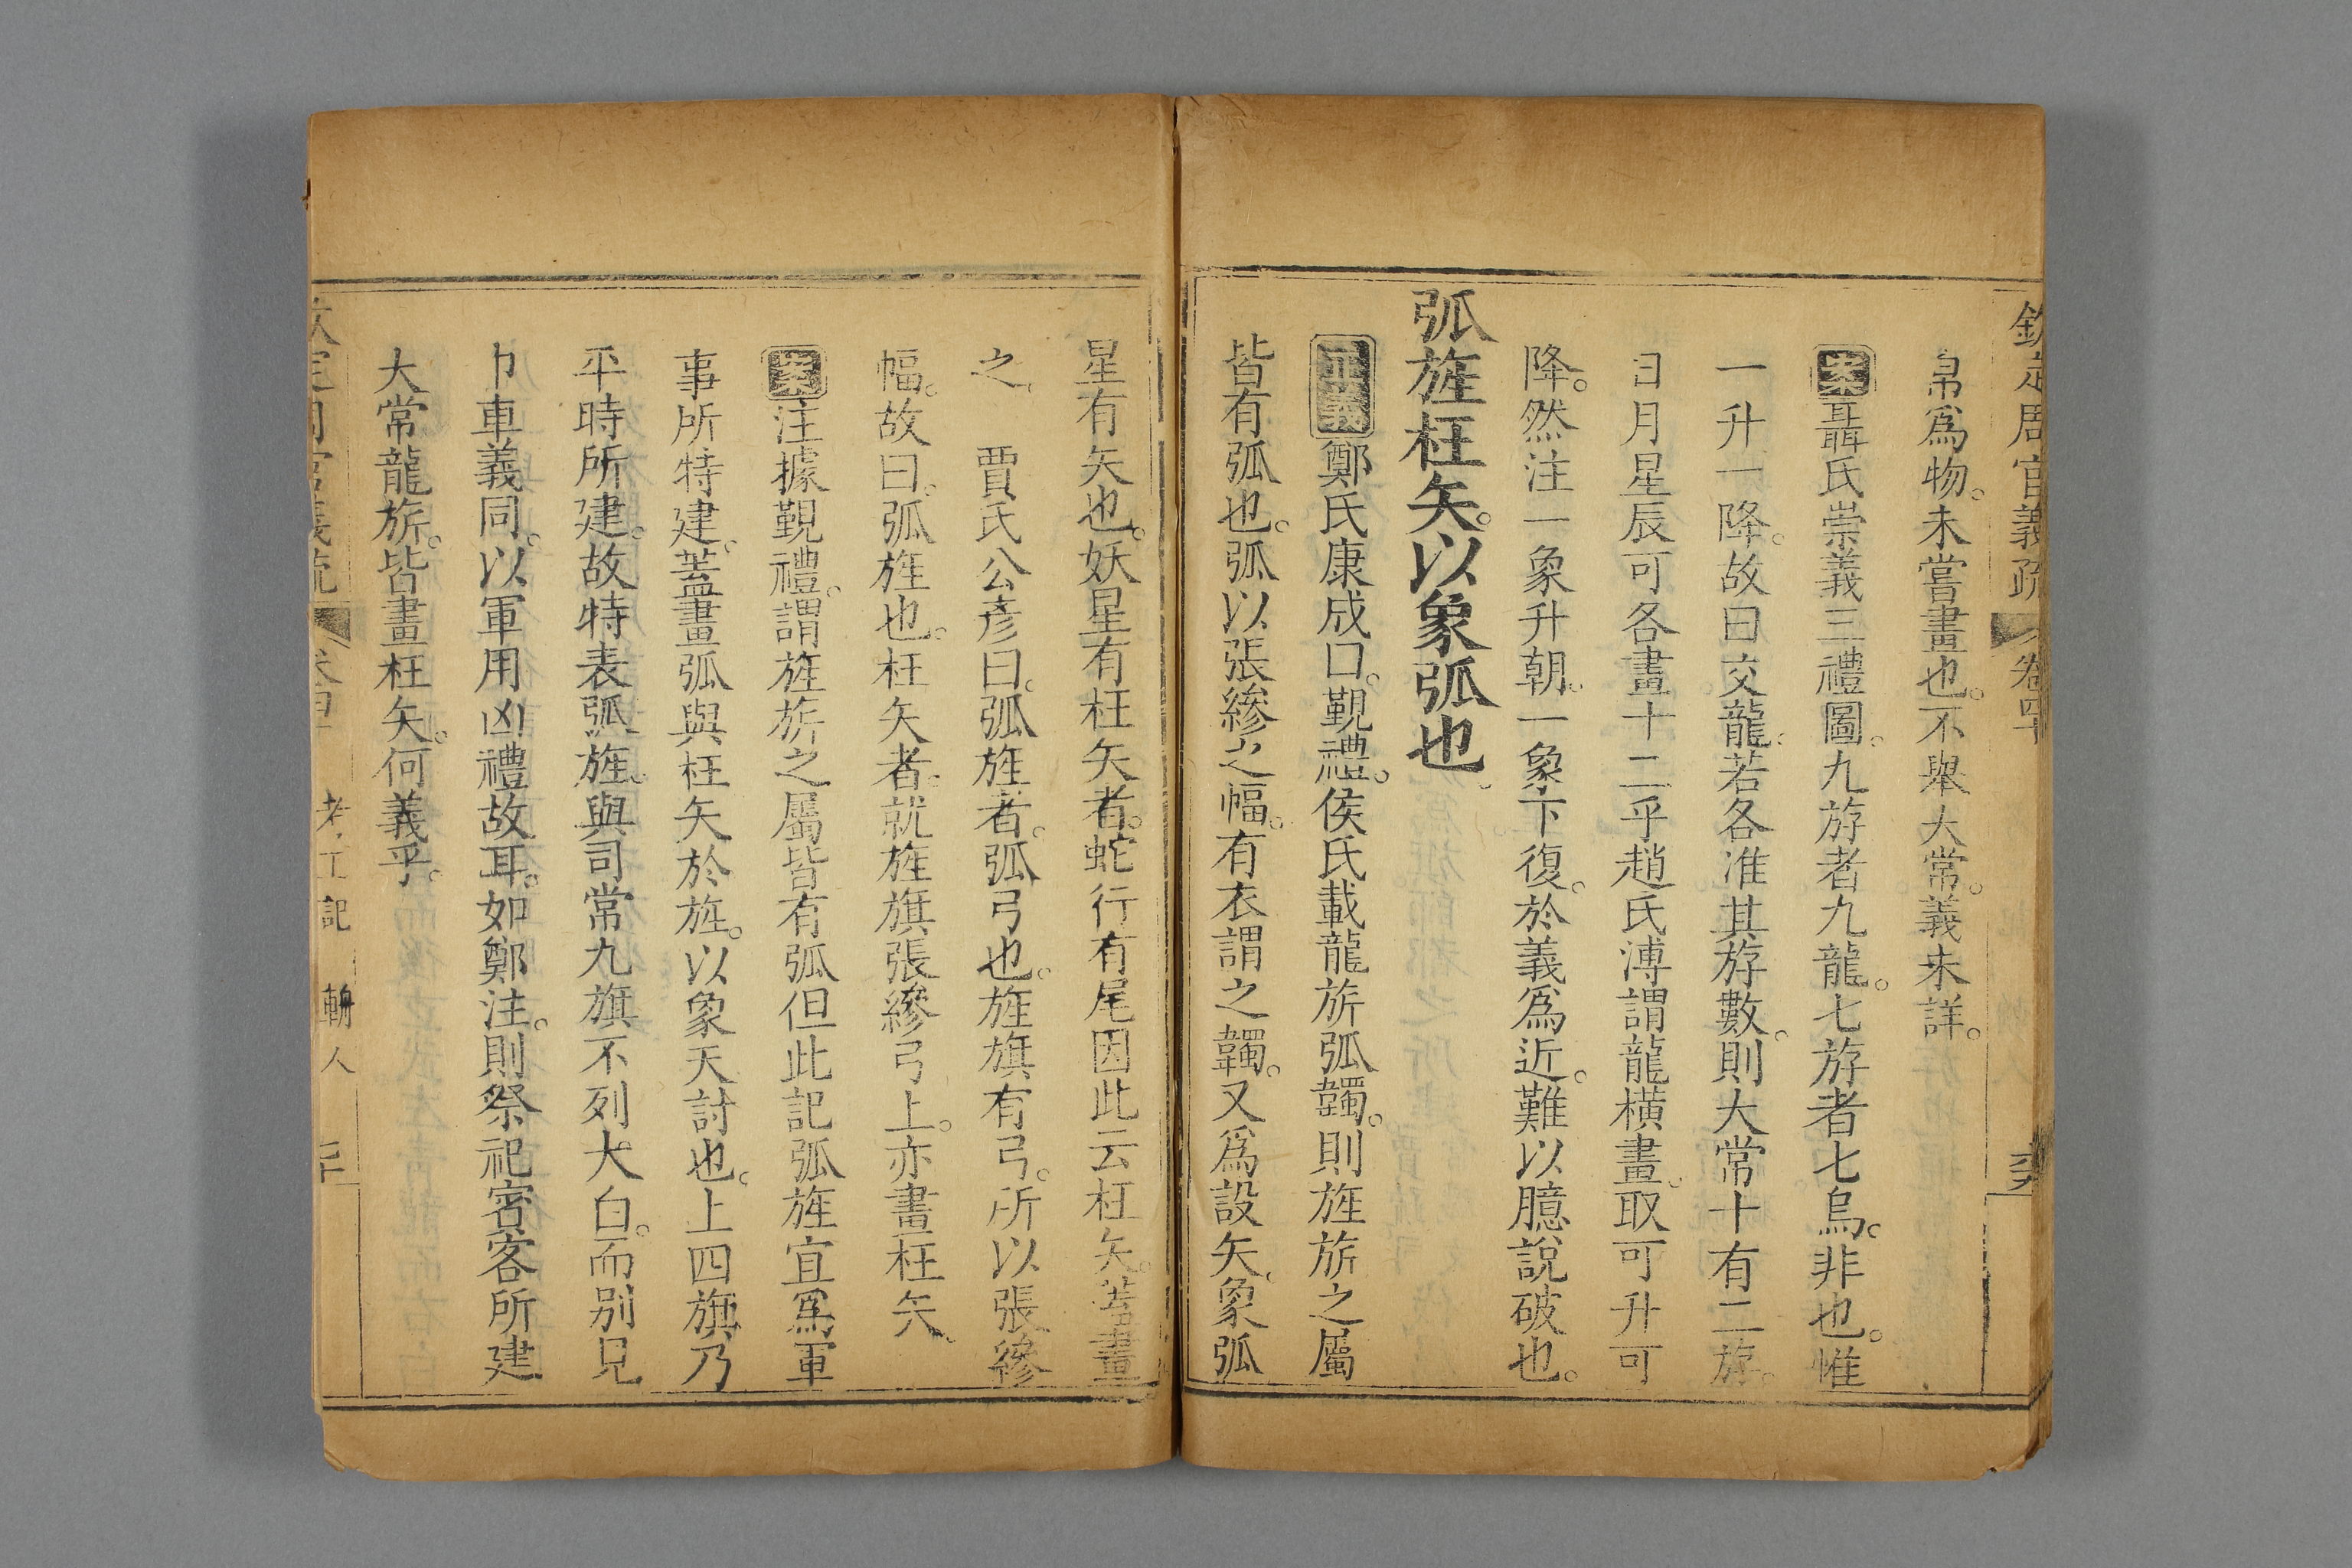 欽定周官義疏 卷四十
帛爲物。未嘗畫也。不舉大常。義未詳。
案聶氏崇義三禮圖。九斿者九龍。七斿者七烏。非也。惟
一升一降。故曰交龍。若各准其斿數。則大常十有二斿。
日月星辰可各畫十二乎趙氏溥謂龍橫畫。取可升可
降。然注一象升朝。一象下復。於義爲近。難以臆說破也。
弧旌枉矢。以象弧也
正義鄭氏康成曰。覲禮。侯氏載龍旂弧韣。則旌旂之屬
皆有弧也。弧以張縿之幅。有衣謂之韣。又爲設矢。象弧
星有矢也。妖星有枉矢者。蛇行有尾因此云枉矢。蓋畫
之。 賈氏公彥曰。弧旌者。弧弓也。旌旗有弓。所以張縿
幅。故曰。弧旌也。枉矢者。就旌旗張縿弓上。亦畫枉矢。
案注據覲禮。謂旌旂之屬皆有弧但此記弧旌宜爲軍
事所特建。蓋畫弧與枉矢於旌。以象天討也。上四旗乃
平時所建。故特表弧旌。與司常九旗不列大白。而別見
巾車義同。以軍用凶禮故耳。如鄭注。則祭祀賓客所建
大常龍旂。皆畫枉矢。何義乎。
欽定周官義疏 卷四十 考工記 輈人